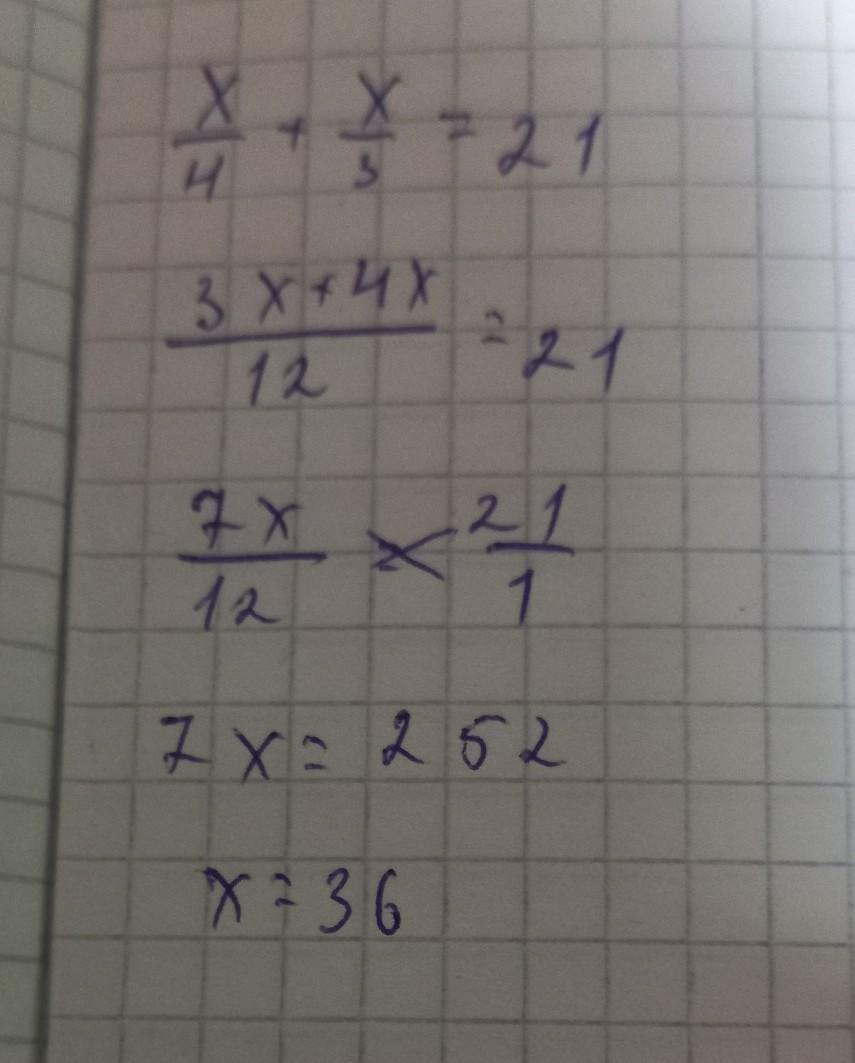 x/4 + x/3 = 21
(3x+4x)/12 = 21
7x/12 = 21/1
7x = 252
x = 36